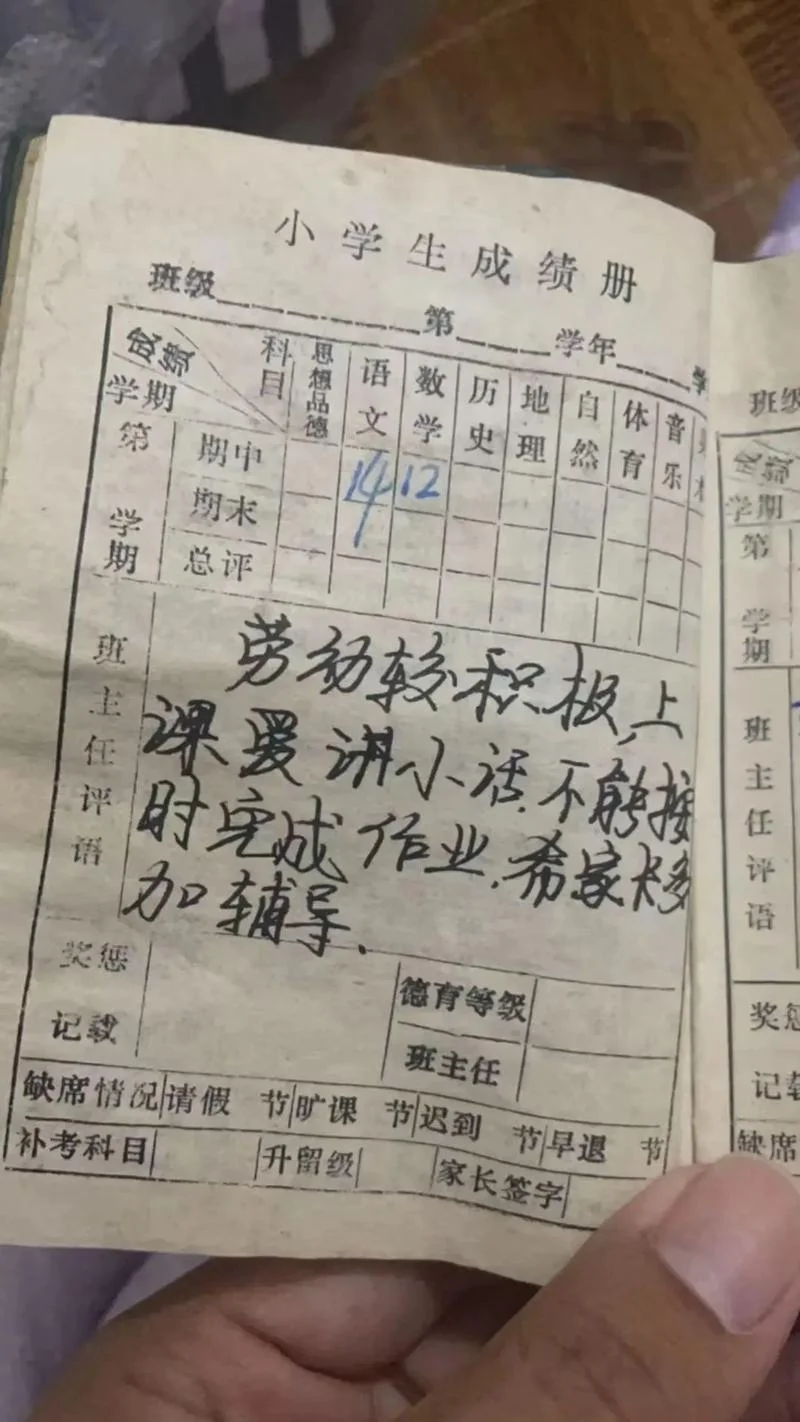 小学生成绩册
班级 第 学年 学
成绩 科目 思想品德 语文 数学 历史 地理 自然 体育 音乐
学期
第 学期 期中
期末 14 12
总评
班主任评语
劳动较积极,上
课爱讲小话.不能按
时完成作业.希家长多
加辅导.
奖惩
记载
德育等级
班主任
缺席情况 请假 节 旷课 节 迟到 节 早退 节
补考科目 升留级 家长签字
班级
成绩
学期
第
学期
班主任评语
奖惩
记载
缺席